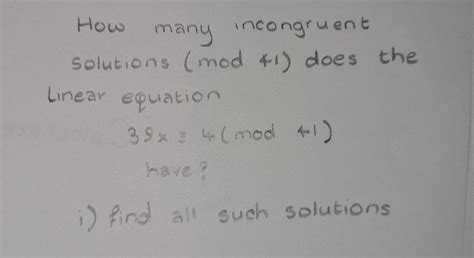 How many incongruent
solutions (mod 41) does the
Linear equation
39x ≡ 4 (mod 41)
have?
i) find all such solutions